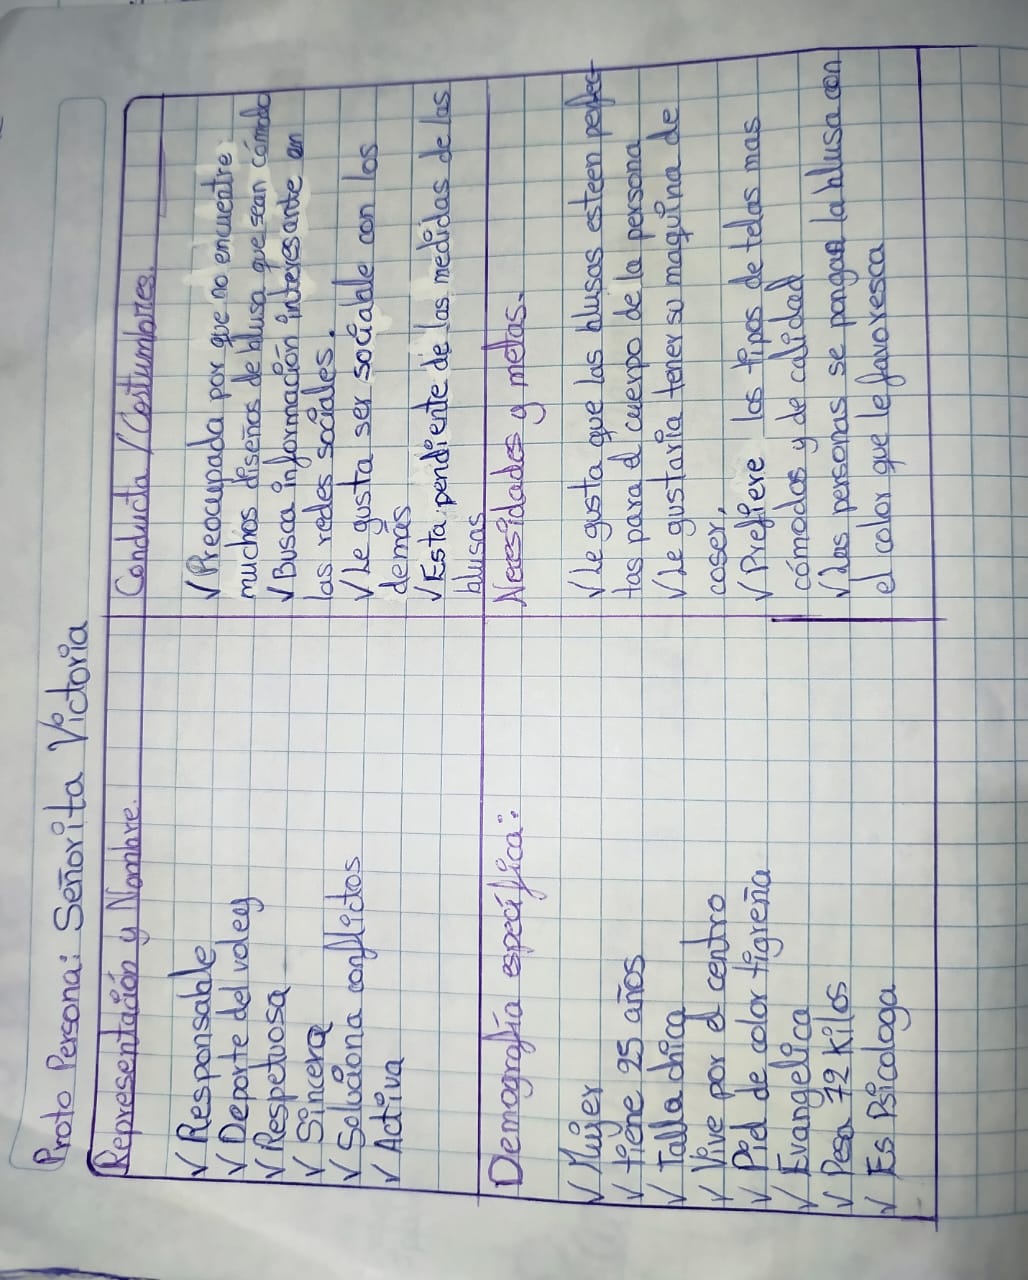 Proto Persona: Señorita Victoria
Representación y Nombre.
√ Responsable
√ Deporte del voley
√ Respetuosa
√ Sincera
√ Soluciona conflictos
√ Activa
Conducta / Costumbres.
√ Preocupada por que no encuentre
muchos diseños de blusa que sean cómodo
√ Busca información interesante en
las redes sociales.
√ Le gusta ser sociable con los
demás
√ Esta pendiente de las medidas de las
blusas
Demografía específica:
√ Mujer
√ tiene 25 años
√ Talla chica
√ Vive por el centro
√ Piel de color tigreña
√ Evangelica
√ Pesa 72 Kilos
√ Es Psicologa
Necesidades y metas.
√ Le gusta que las blusas esteen perfec
tas para el cuerpo de la persona
√ Le gustaría tener su maquina de
coser,
√ Prefiere los tipos de telas mas
cómodas y de calidad
√ Las personas se pongan la blusa con
el color que le favoresca